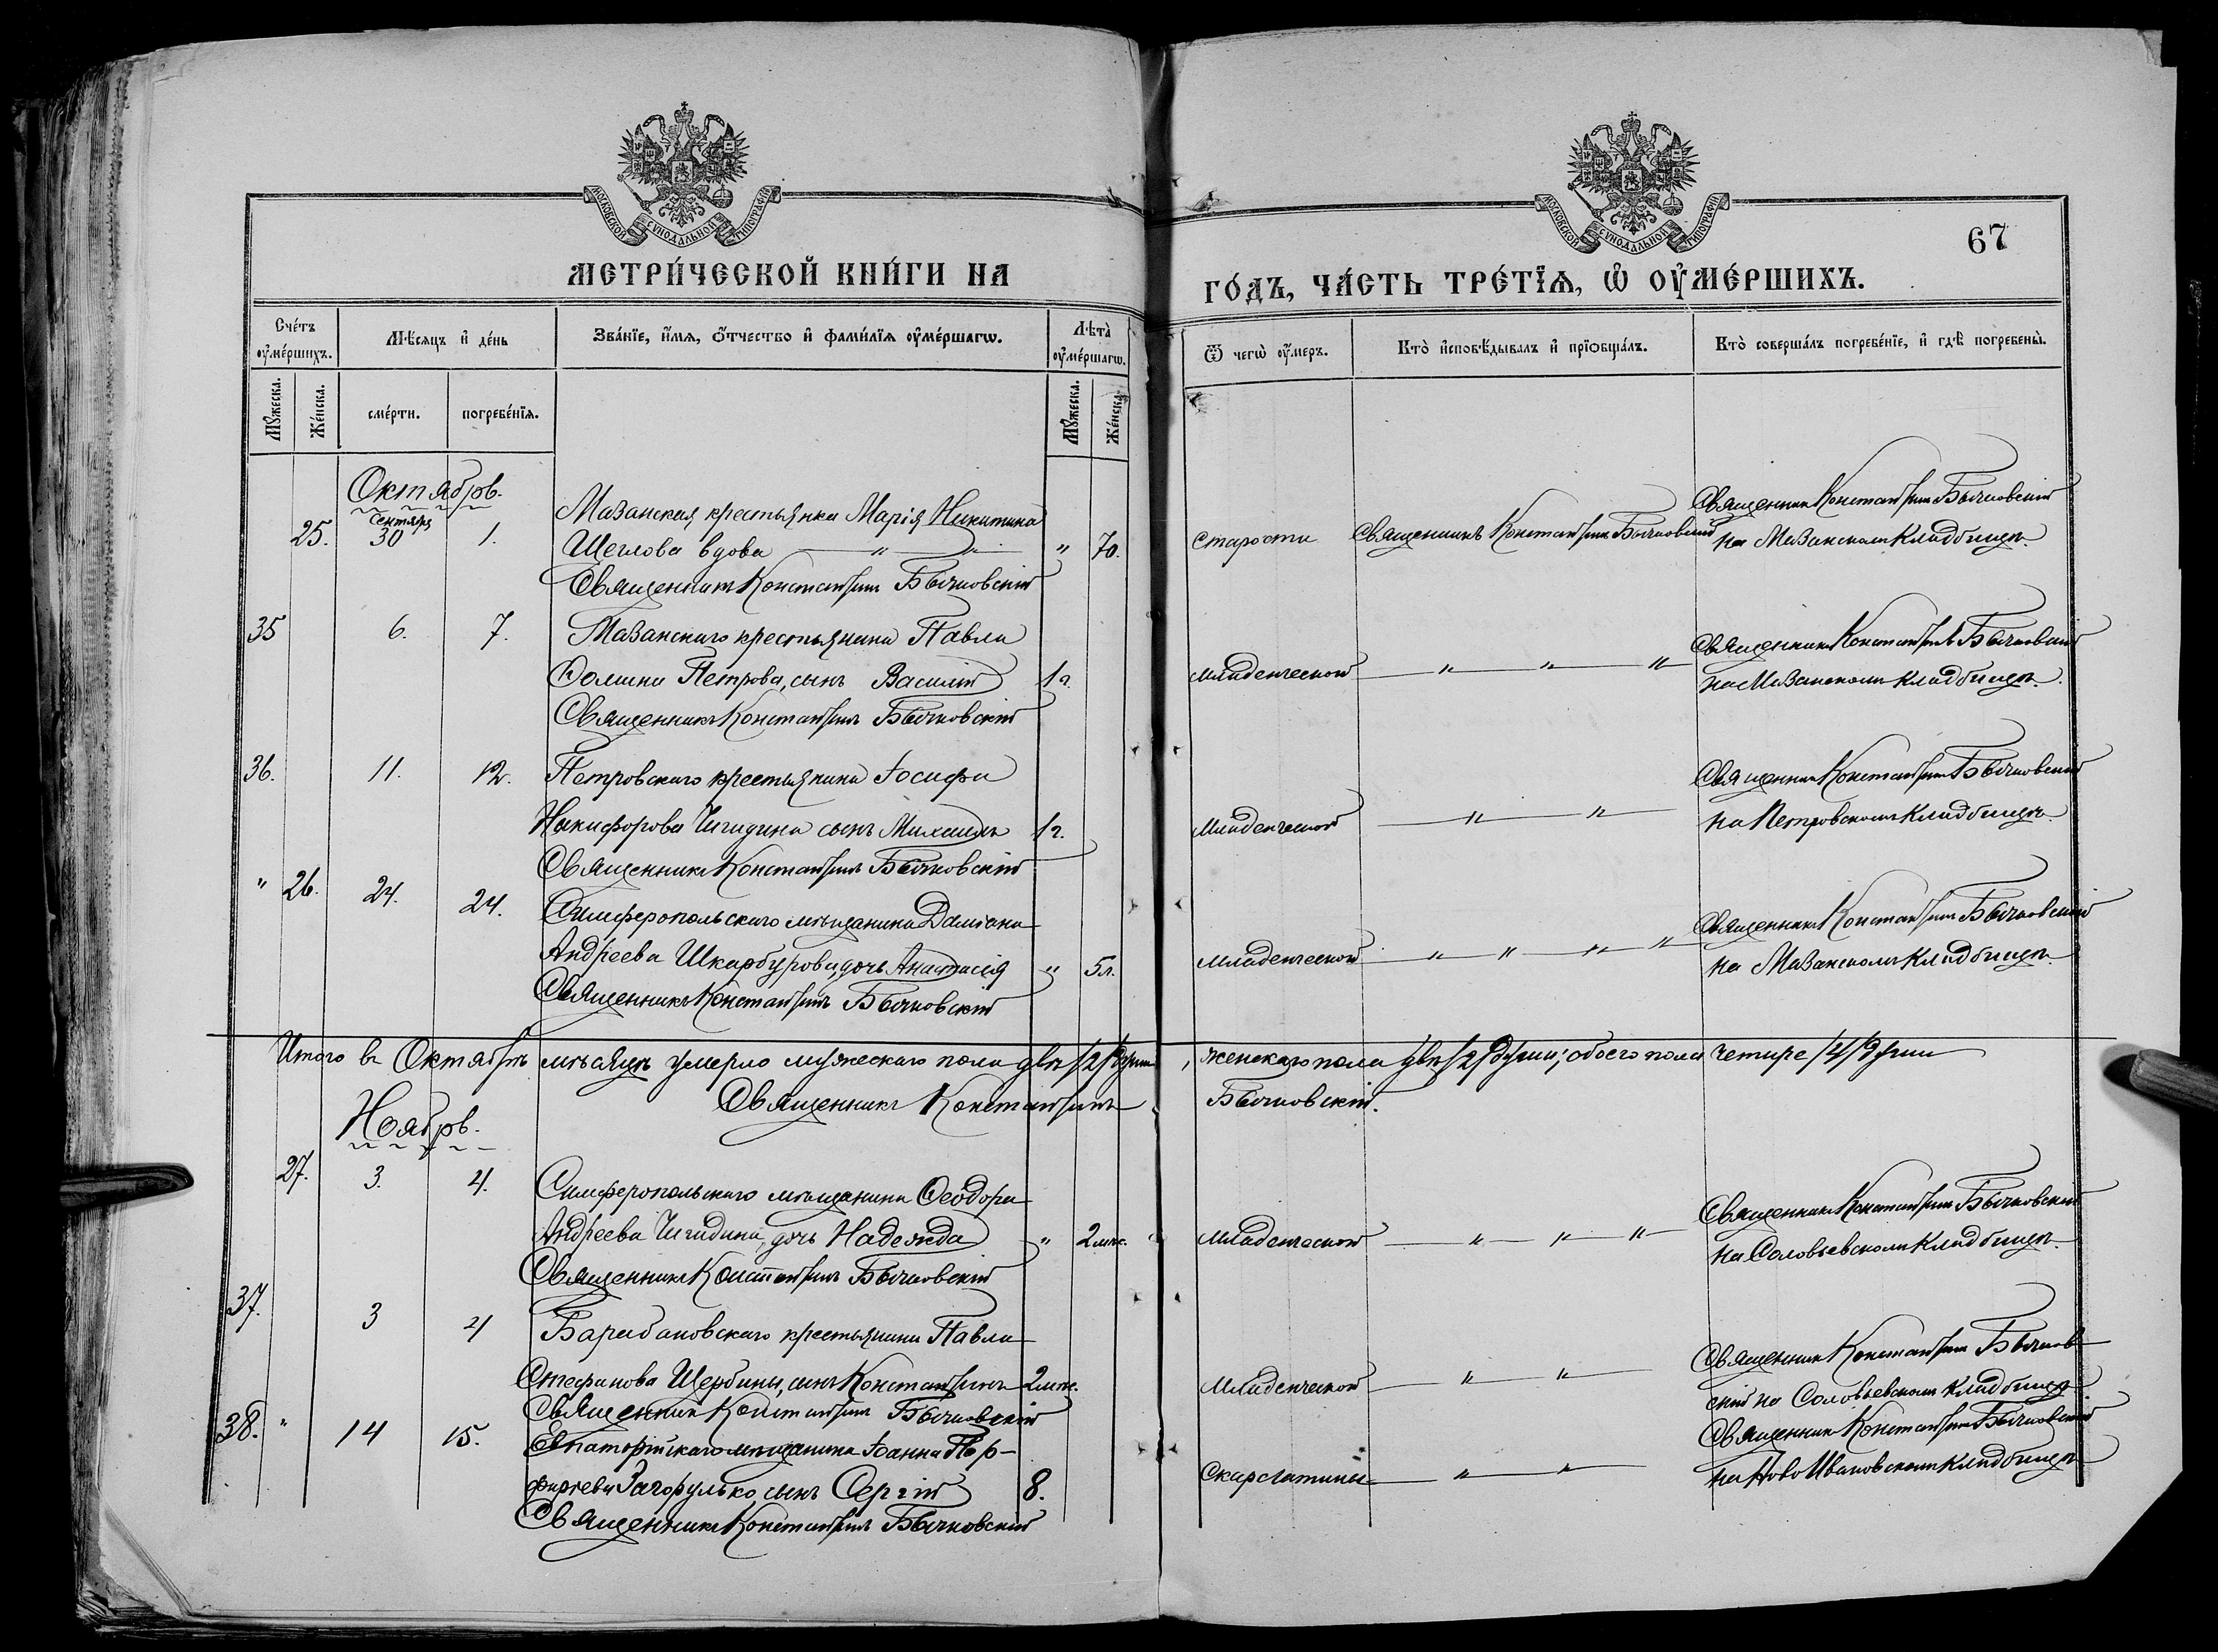 МОСКОВСКОЙ СѴНОДАЛЬНОЙ ТИПОГРАФІИ
МОСКОВСКОЙ СѴНОДАЛЬНОЙ ТИПОГРАФІИ
67
МЕТРИ́ЧЕСКОЙ КНИ́ГИ НА
ГО́ДЪ, ЧА́СТЬ ТРЕ́ТЇѦ, Ѡ҆ ОУ҆МЕ́РШИХЪ.
Сче́тъ оу҆ме́ршихъ.
Мѣ́сѧцъ и҆ де́нь
Зва́нїе, и҆́мѧ, ѻ҆́тчество и҆ фами́лїѧ оу҆ме́ршагѡ.
Лѣта̀ оу҆ме́ршагѡ.
Ѿ чегѡ̀ оу҆́меръ.
Кто̀ и҆сповѣ́дывалъ и҆ прїѻбща́лъ.
Кто̀ соверша́лъ погребе́нїе, и҆ гдѣ̀ погребены̀.
Мꙋ́жеска.
Же́нска.
сме́рти.
погребе́нїѧ.
Мꙋ́жеска.
Же́нска.
Октябрь.
25. Сентябр 30 1. Мазанская крестьянка Марія Никитина
Щеглова вдова — " — " — " 70.
Священникъ Константинъ Бычковскій
Старости
Священникъ Константинъ Бычковскій
Священникъ Константинъ Бычковскій
на Мазанскомъ кладбищѣ.
35 6. 7. Мазанскаго крестьянина Павла
Фомина Петрова, сынъ Василій 1 г.
Священникъ Константинъ Бычковскій
младенческой — " — " — "
Священникъ Константинъ Бычковскій
на Мазанскомъ кладбищѣ.
36. 11. 12. Петровскаго крестьянина Іосифа
Никифорова Чигидина сынъ Михаилъ 1 г.
Священникъ Константинъ Бычковскій
младенческой — " — " —
Священникъ Константинъ Бычковскій
на Петровскомъ кладбищѣ.
" 26. 24. 24. Симферопольскаго мѣщанина Даміана
Андреева Шкарбурова, дочь Анастасія " 5 л.
Священникъ Константинъ Бычковскій
младенческой — " — " — " — "
Священникъ Константинъ Бычковскій
на Мазанскомъ кладбищѣ.
Итого въ Октябрѣ мѣсяцѣ умерло мужескаго пола двѣ /2/ души, женскаго пола двѣ /2/ души; обоего пола четыре /4/ души
Священникъ Константинъ Бычковскій.
Ноябрь.
27. 3. 4. Симферопольскаго мѣщанина Феодора
Андреева Чигидина, дочь Надежда " 2 мѣс.
Священникъ Константинъ Бычковскій
младенческой — " — " — "
Священникъ Константинъ Бычковскій
на Соловьевскомъ кладбищѣ.
37. 3 4 Барабановскаго крестьянина Павла
Стефанова Щербины, сынъ Константинъ 2 мѣс.
Священникъ Константинъ Бычковскій
младенческой — " — " —
Священникъ Константинъ Бычков-
скій на Соловьевскомъ кладбищѣ.
38. " 14 15. Евпаторійскаго мѣщанина Іоанна Пор-
фирьева Загорулько, сынъ Сергій 8.
Священникъ Константинъ Бычковскій
Скарлатины — " — " —
Священникъ Константинъ Бычковскій
на Ново Ивановскомъ кладбищѣ